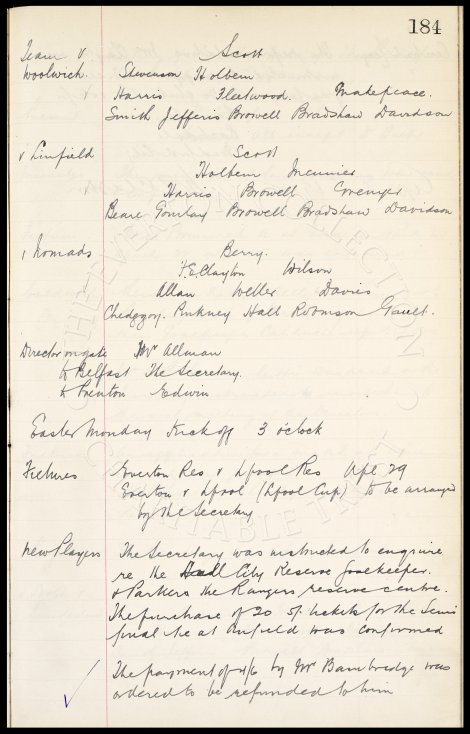 184
Team v Scott
Woolwich Stevenson Holbem
v Harris Fleetwood. Makepeace.
Smith Jefferis Browell Bradshaw Davidson
v Linfield Scott
Holbem Meunier
Harris Browell Grenyer
Beare Gourlay Browell Bradshaw Davidson
v Nomads Berry.
F.E. Clayton Wilson
Allan Weller Davies
Chedgzoy. Pinkney Hall Robinson Gault.
Director on gate Mr Allman
to Belfast The Secretary.
to Prenton Edwin
Easter Monday Kick off 3 o'clock
Fixtures Everton Res v L'pool Res Apl 29
Everton v L'pool (L'pool Cup) to be arranged
by the Secretary
New Players The Secretary was instructed to enquire
re the Hull City Reserve Goalkeeper.
& Parker the Rangers reserve centre.
The purchase of 20 5/- tickets for the Semi
final tie at Anfield was confirmed
The payment of 4/6 by Mr Bambridge was
ordered to be refunded to him
THE EVERTON COLLECTION
CHARITABLE TRUST